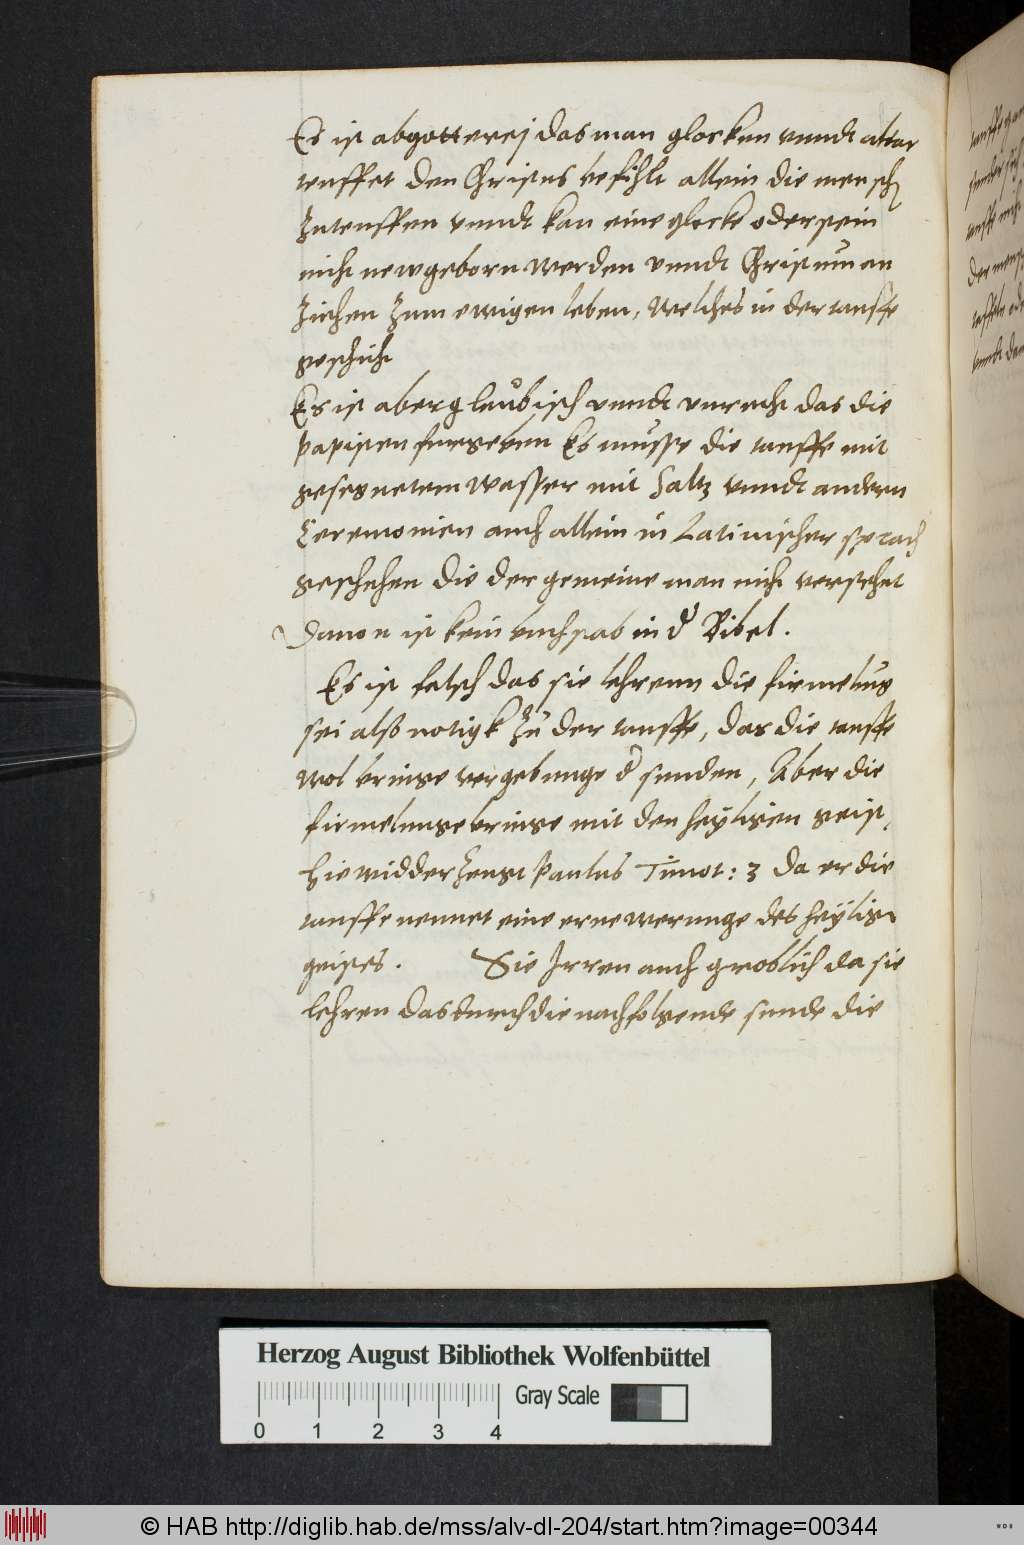 Es ist abgotterej das man glocken unndt altar
teuffet den Christus befihlt allein die mensch
Zuteuffen unndt kan eine glocke oder stein
nicht newgeborn werden unndt Christum an
Ziehen Zum ewigen leben, Welches in der tauffe
geschicht
Es ist aberglaubisch unndt unrecht das die
Papisten furgeben Es musse die tauffe mit
gesegnetem Wasser mit Saltz unndt andern
Ceremonien auch allein in Latinischer sprach
geschehen die der gemeine man nicht verstehet
Davon ist kein buchstab in d Bibel.
Es ist falsch das sie lehrenn die firmelung
sei alß notigk Zu der tauffe, das die tauffe
wol bringe vergebunge d sunden, Aber die
firmelunge bringe mit den heyligen geist,
Hiewidder Zeugt Paulus Timot: 3 da er die
tauffe nennet eine ernewerunge des heylige
geistes. Sie Irren auch groblich da sie
lehren das durch die nachfolgende sunde die
Herzog August Bibliothek Wolfenbüttel
Gray Scale
0 1 2 3 4
© HAB http://diglib.hab.de/mss/alv-dl-204/start.htm?image=00344